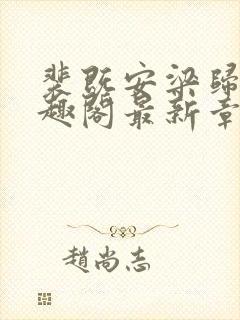 裴既安梁歸
趣閣最新章
趙尚志